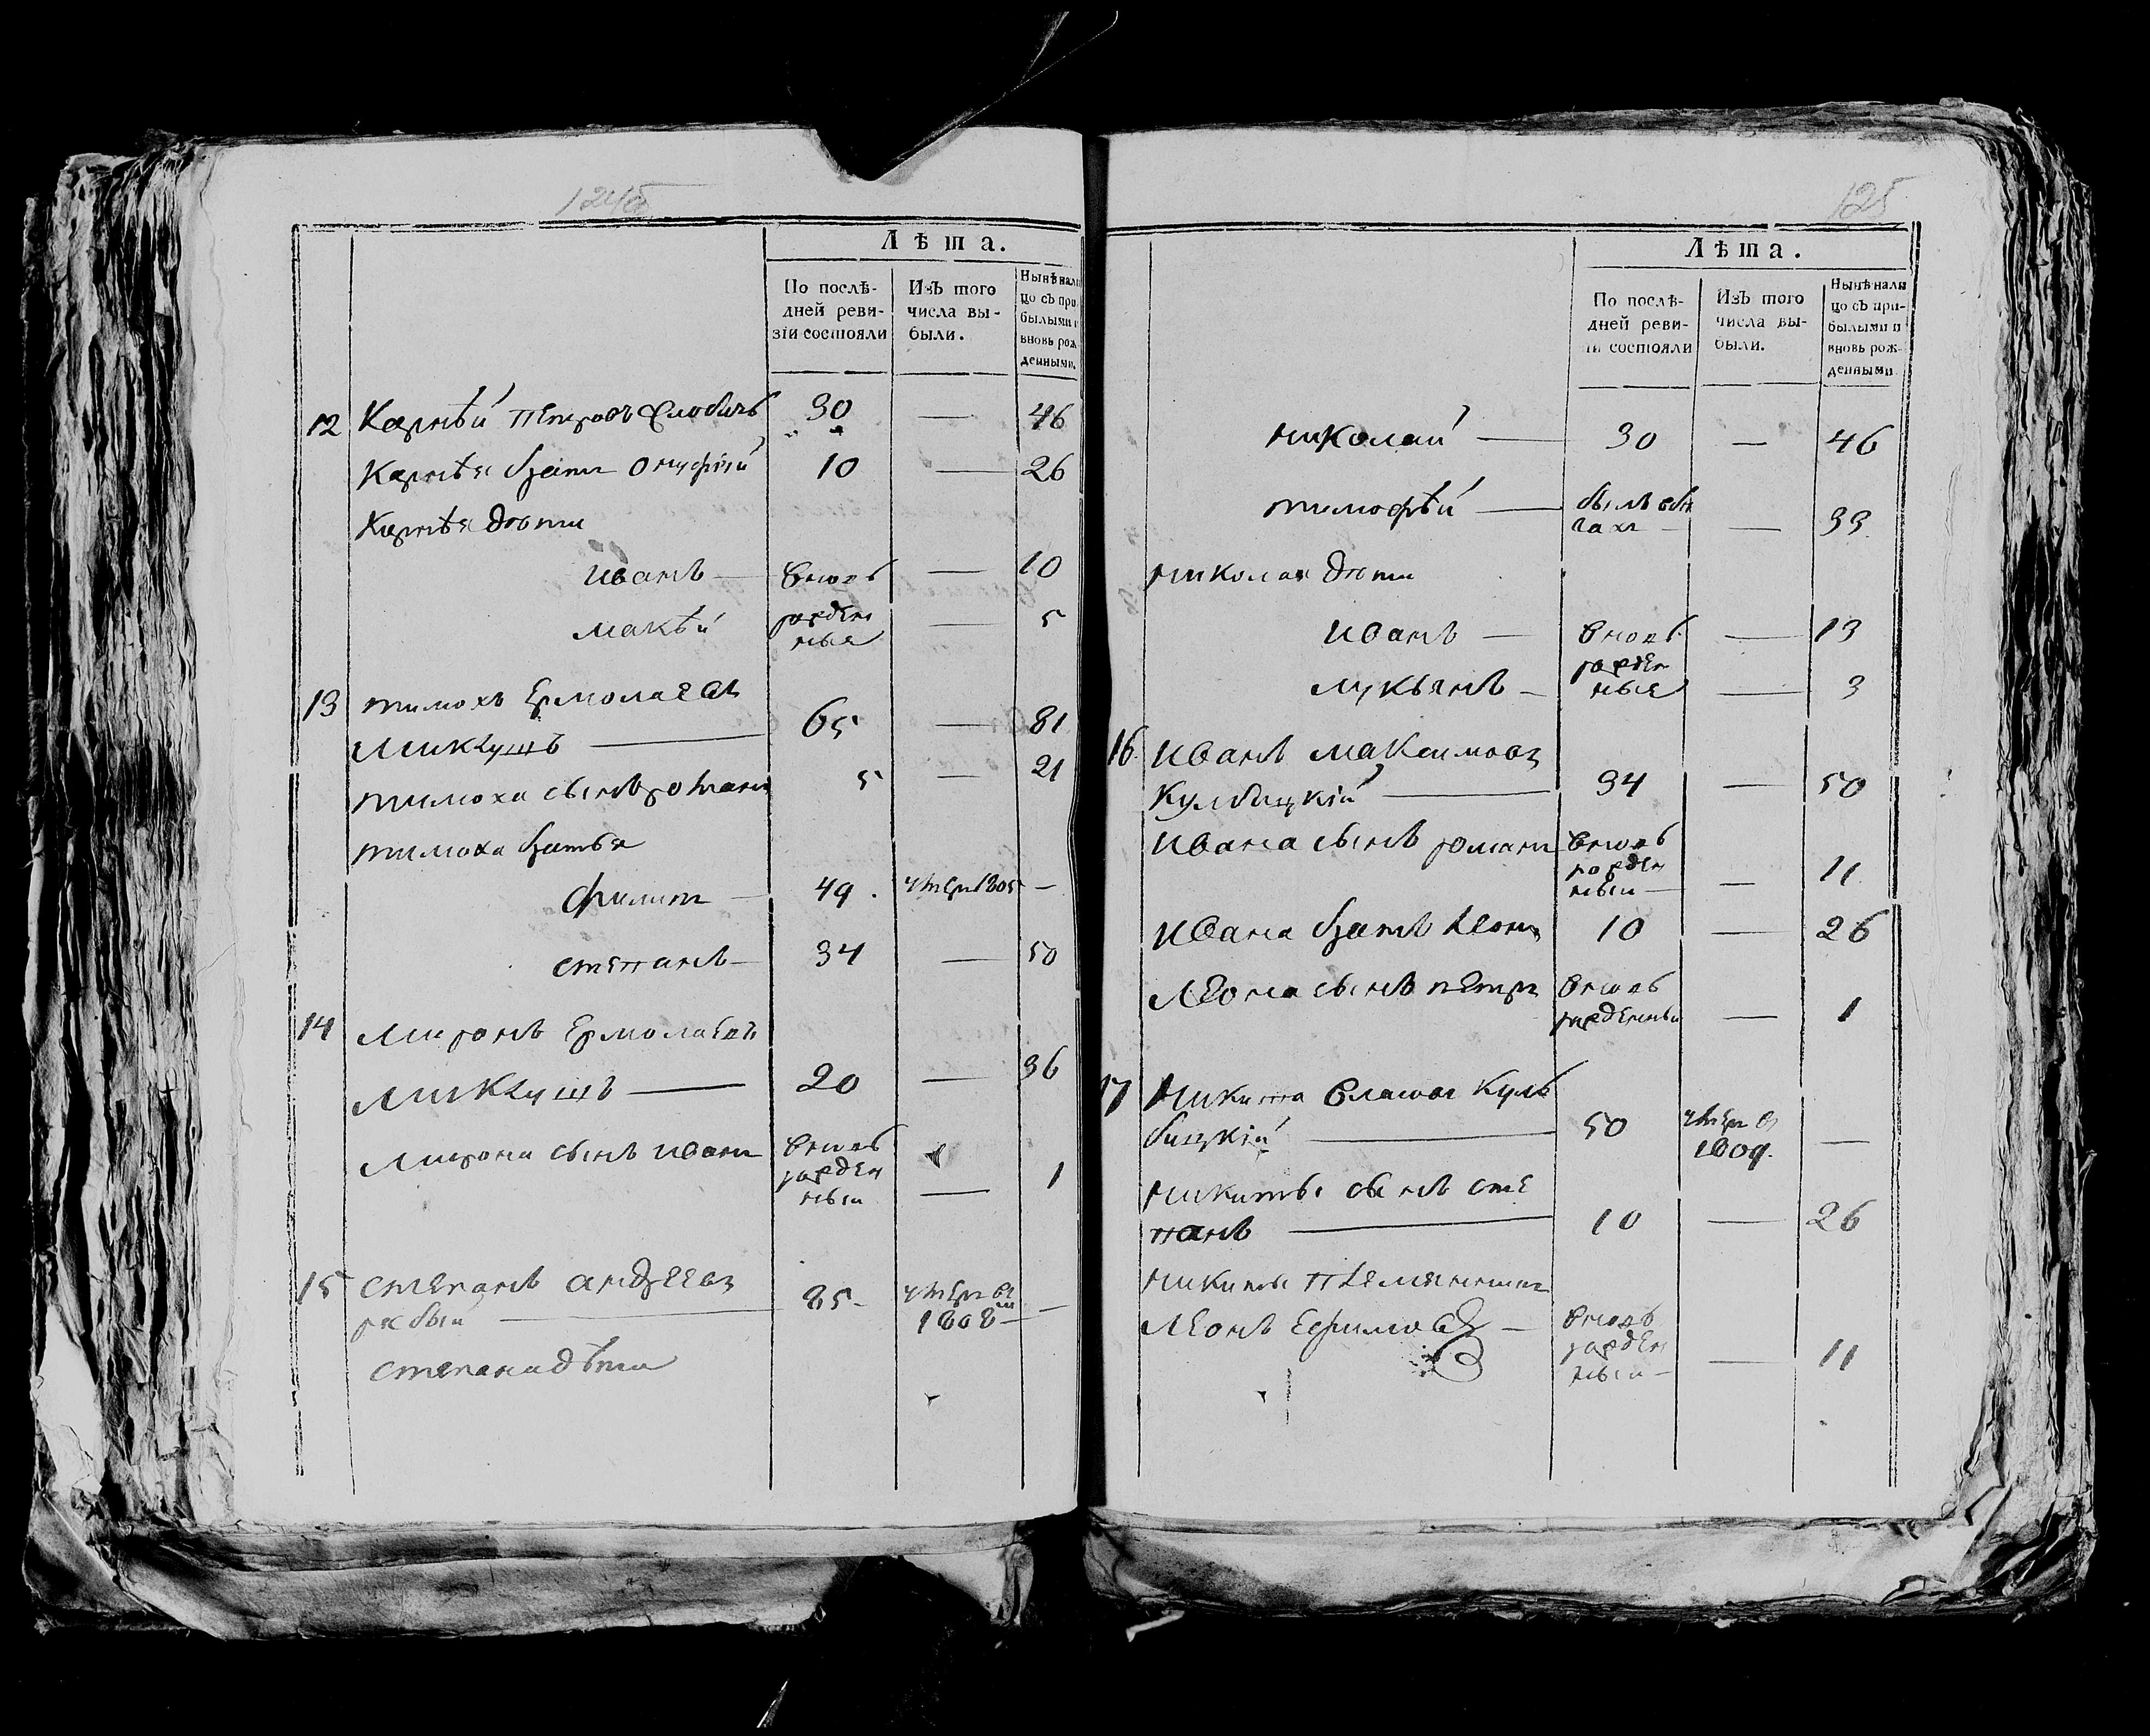 Лѣта.
По послѣ-
дней реви-
зіи состояли
Изъ того
числа вы-
были.
Нынѣ нали
цо съ при
былыми и
вновь рож
денными.
12 Карнѣй Петровъ 30 — 46
Карнѣя братъ Онуфрій 10 — 26
Карнѣя дѣти
Иванъ — вновь — 10
Макѣй рожден
ные — 5
13 Тимохъ Ермолаевъ
Микушъ — 65 — 81
Тимоха сынъ Романъ 5 — 21
Тимоха братья
Филипъ — 49. умеръ 1805 —
Степанъ — 34 — 50
14 Миронъ Ермолаевъ
Микушъ — 20 — 36
Мирона сынъ Иванъ вновь
рожден
ный — 1
15 Степанъ Андреевъ
рабый — 85 — умеръ въ
1808 —
Степана дѣти
125
Лѣта.
По послѣ-
дней реви-
зіи состояли
Изъ того
числа вы-
были.
Нынѣ нали
цо съ при-
былыми и
вновь рож-
денными
Николай — 30 — 46
Тимофѣй — былъ въ бѣ
гахъ — — 33
Николая дѣти
Иванъ — вновь — 13
рожден
Лукьянъ — ные — 3
16 Иванъ Максимовъ
Кулбицкій — 34 — 50
Ивана сынъ Романъ вновь
рожден
ный — — 11
Ивана братъ Леонъ 10 — 26
Леона сынъ Петръ вновь
рожденный — 1
17 Никита Власовъ Куль
бицкій — 50 умеръ въ
1809. —
Никиты сынъ Сте
панъ — 10 — 26
Никиты племянникъ
Леонъ Ефимовъ — вновь
рожден
ный — — 11